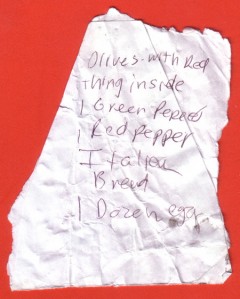 Olives-with Red
thing inside
1 Green Pepper
1 Red pepper
Italian
Bread
1 Dozen eggs